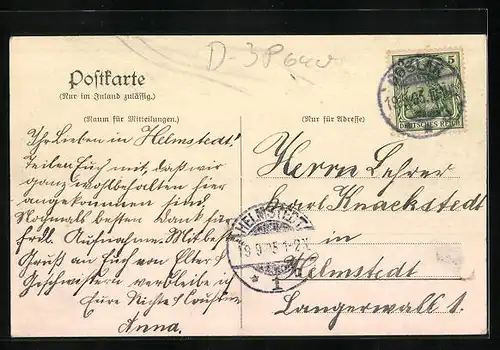 D-38640
Postkarte
(Nur im Inland zulässig.)
(Raum für Mitteilungen.)
Ihr Lieben in Helmstedt!
Teilen Euch mit, daß wir
ganz wohlbehalten hier
angekommen sind.
Nochmals besten Dank für
frdl. Aufnahme. Mit best.
Gruß an Euch von Eltern &
Geschwistern verbleibe ich
Eure Nichte & Cousine
Anna.
(Nur für Adresse)
5
DEUTSCHES REICH
GOSLAR
Herrn Lehrer
Karl Knackstedt
in
Helmstedt
Langerwall 1.
HELMSTEDT
9.05 1-2N
* 1